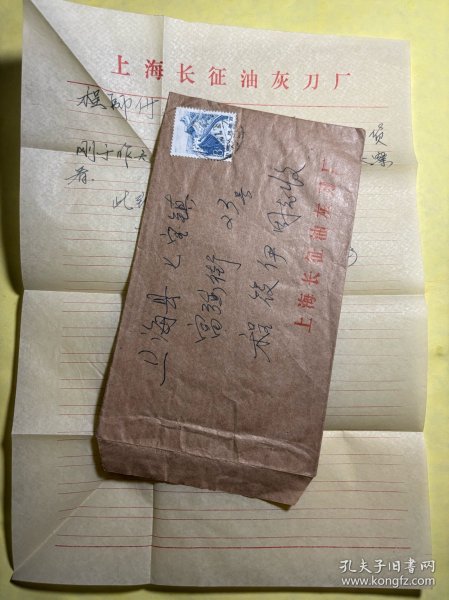 上海长征油灰刀厂
程师付
货
刚于昨天
看
此致
上海县七宝镇
富强街 23号
程筱伊 同志收
上海长征油灰刀厂
孔夫子旧书网
www.kongfz.com